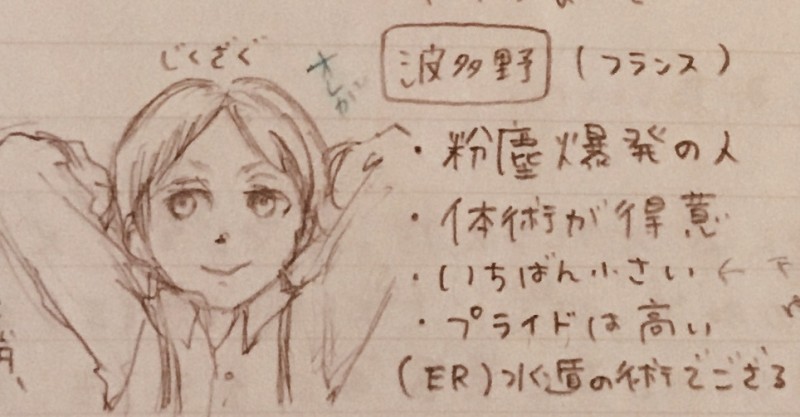 じくざぐ
波多野 (フランス)
・粉塵爆発の人
・体術が得意
・いちばん小さい ←
・プライドは高い
(ER)水遁の術でござる